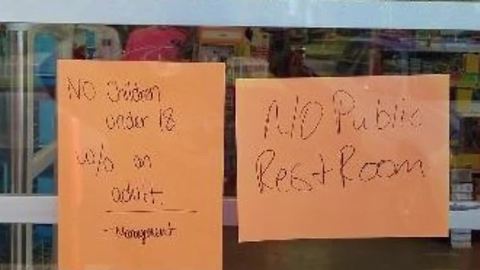 NO Children
under 18
w/o an
adult.
- Management
N/O Public
Rest Room